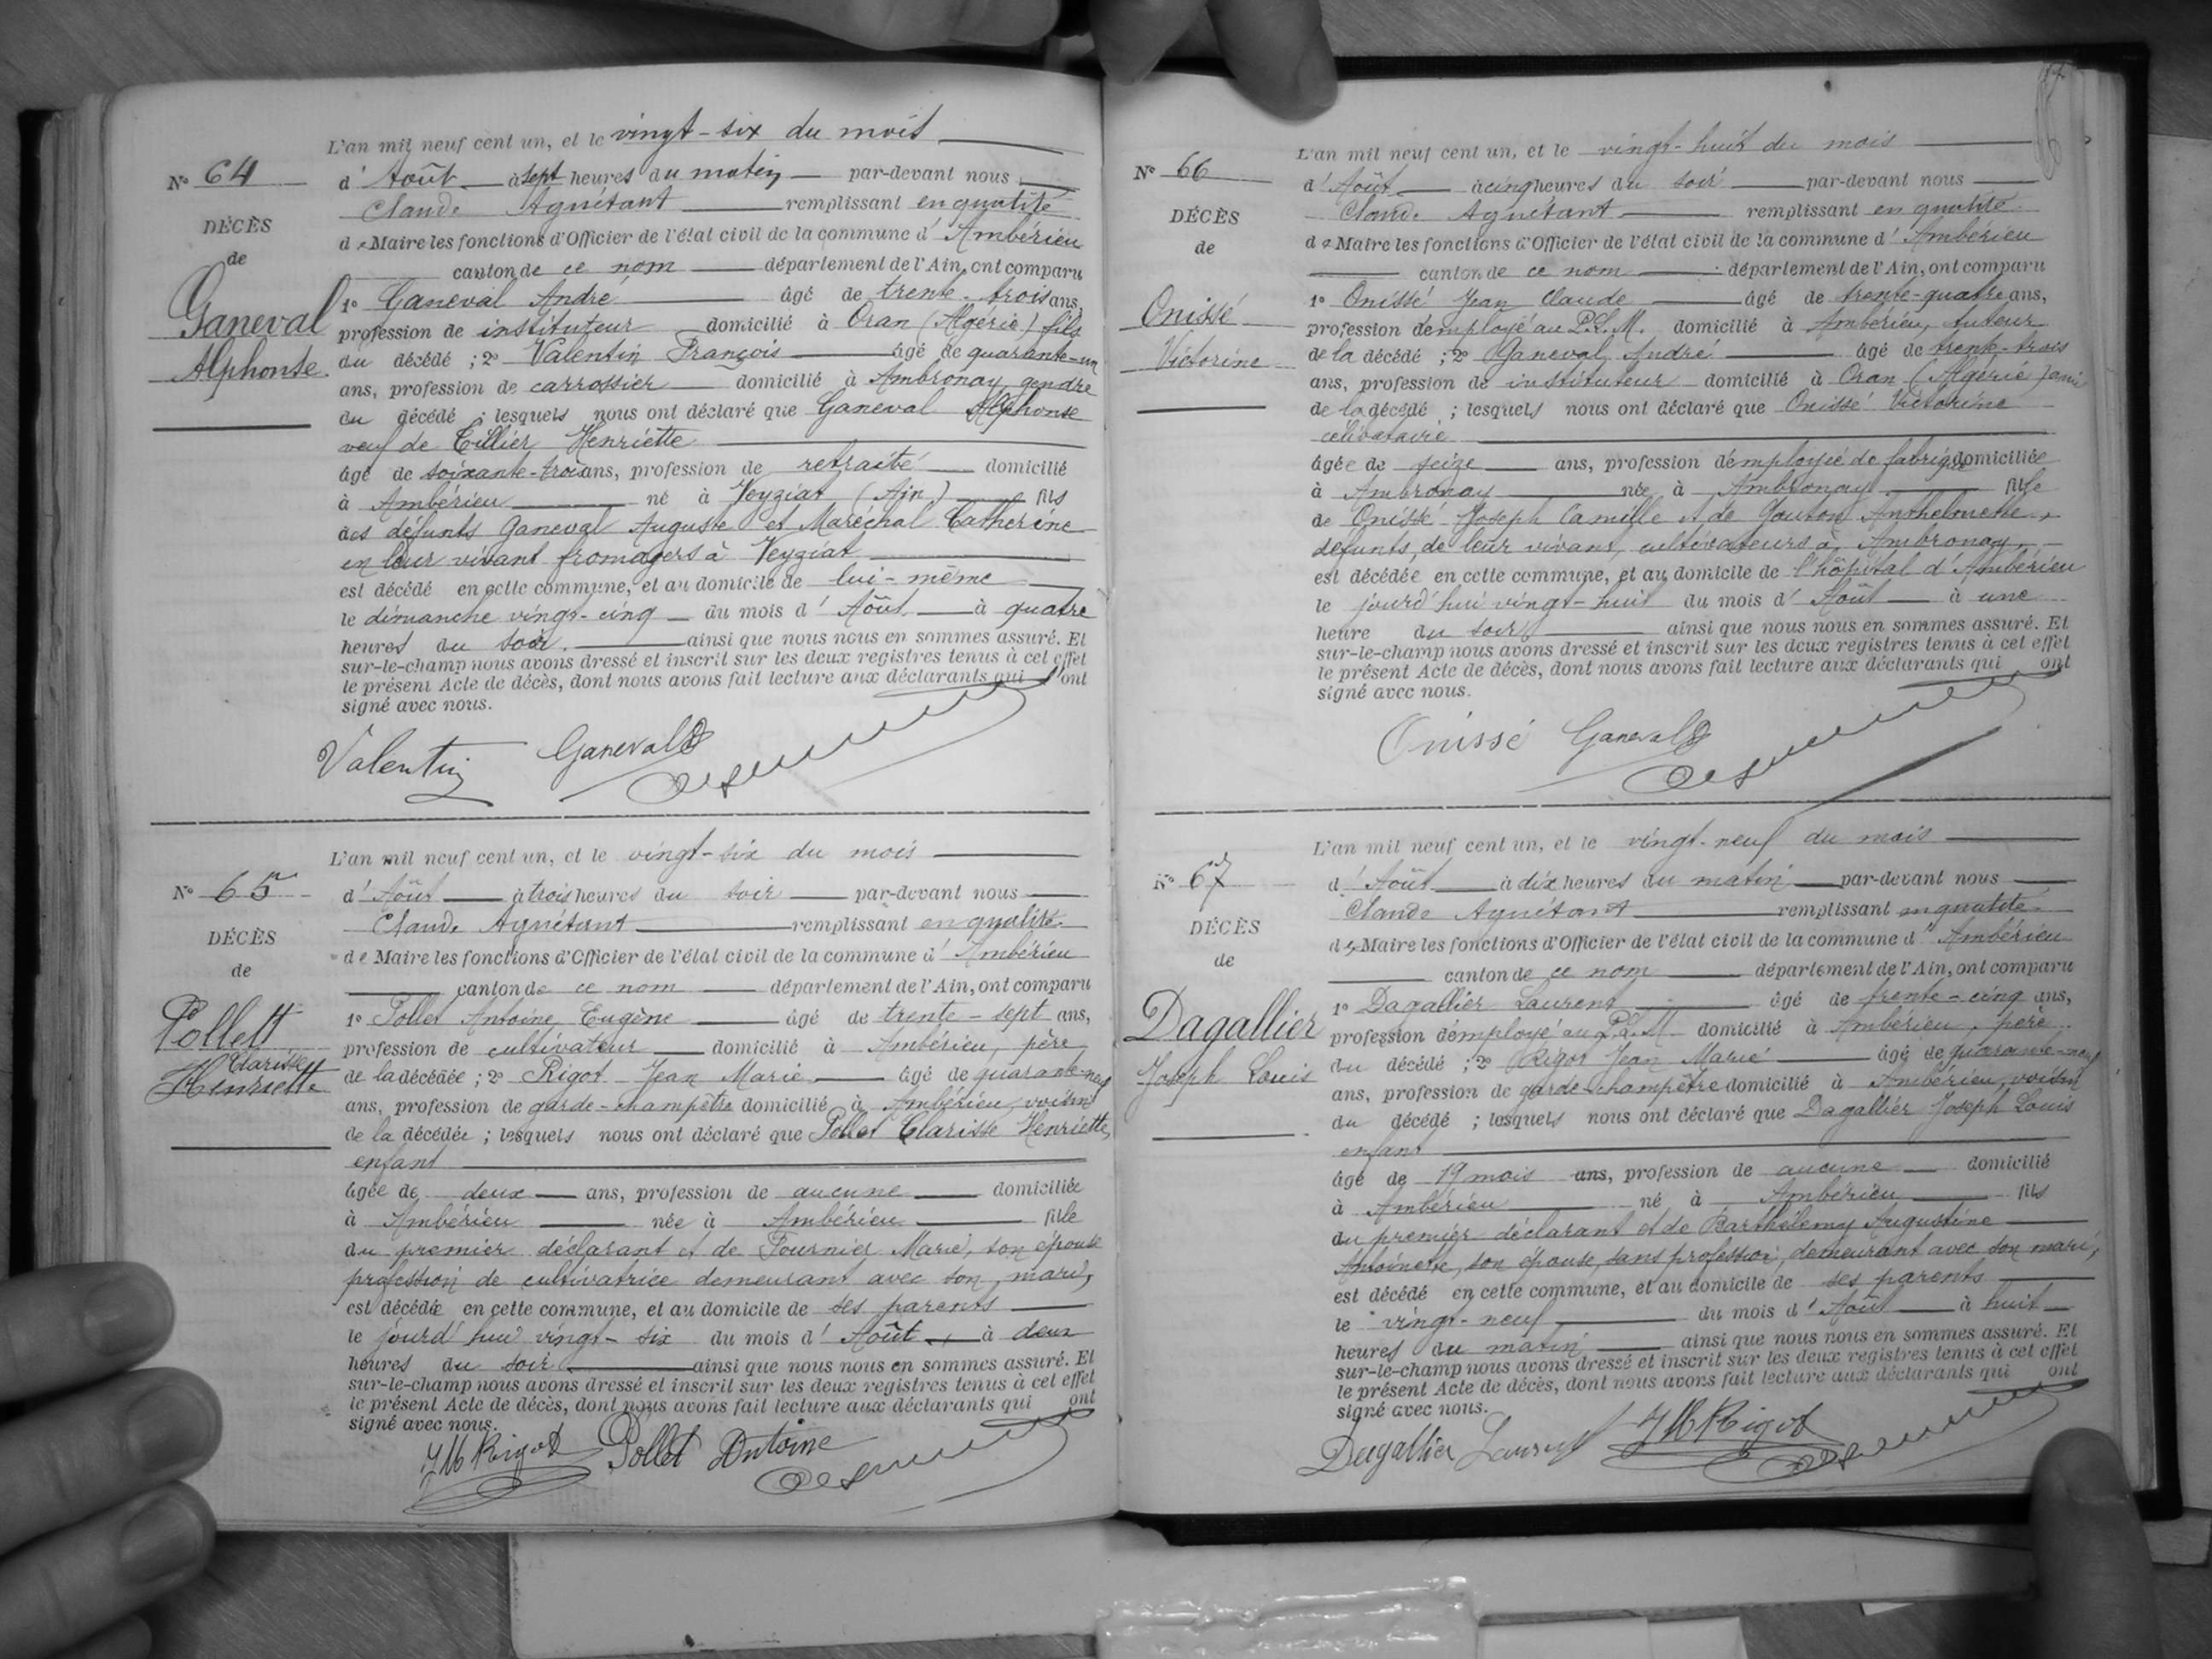 L'an mil neuf cent un, et le vingt-six du mois
N° 64
d'Août à sept heures du matin par-devant nous
Claude Agnétant remplissant en qualité
DÉCÈS
de Maire les fonctions d'Officier de l'état civil de la commune d'Ambérieu
de
canton de ce nom département de l'Ain, ont comparu
Ganeval
Alphonse
1° Ganeval André âgé de trente-trois ans,
profession de instituteur domicilié à Oran (Algérie) fils
du décédé ; 2° Valentin François âgé de quarante-un
ans, profession de carrossier domicilié à Ambronay, gendre
du décédé ; lesquels nous ont déclaré que Ganeval Alphonse
veuf de Tillier Henriette
âgé de soixante-trois ans, profession de retraité domicilié
à Ambérieu né à Veyziat (Ain) fils
des défunts Ganeval Auguste et Maréchal Catherine
en leur vivant fromagers à Veyziat
est décédé en cette commune, et au domicile de lui-même
le dimanche vingt-cinq du mois d'Août à quatre
heures du soir. ainsi que nous nous en sommes assuré. Et
sur-le-champ nous avons dressé et inscrit sur les deux registres tenus à cet effet
le présent Acte de décès, dont nous avons fait lecture aux déclarants qui ont
signé avec nous.
Valentin Ganeval
L'an mil neuf cent un, et le vingt-six du mois
N° 65
d'Août à trois heures du soir par-devant nous
Claude Agnétant remplissant en qualité
DÉCÈS
de Maire les fonctions d'Officier de l'état civil de la commune d'Ambérieu
de
canton de ce nom département de l'Ain, ont comparu
Pollett
Clarisse
Henriette
1° Pollet Antoine Eugène âgé de trente-sept ans,
profession de cultivateur domicilié à Ambérieu, père
de la décédée ; 2° Rigot Jean Marie âgé de quarante-neuf
ans, profession de garde-champêtre domicilié à Ambérieu, voisin
de la décédée ; lesquels nous ont déclaré que Pollet Clarisse Henriette,
enfant
âgée de deux ans, profession de aucune domiciliée
à Ambérieu née à Ambérieu fille
du premier déclarant et de Fournier Marie, son épouse
profession de cultivatrice demeurant avec son mari,
est décédée en cette commune, et au domicile de ses parents
le jourd'hui vingt-six du mois d'Août à deux
heures du soir ainsi que nous nous en sommes assuré. Et
sur-le-champ nous avons dressé et inscrit sur les deux registres tenus à cet effet
le présent Acte de décès, dont nous avons fait lecture aux déclarants qui ont
signé avec nous.
JM Rigot Pollet Antoine
L'an mil neuf cent un, et le vingt-huit du mois
N° 66
d'Août à cinq heures du soir par-devant nous
Claude Agnétant remplissant en qualité
DÉCÈS
de Maire les fonctions d'Officier de l'état civil de la commune d'Ambérieu
de
canton de ce nom département de l'Ain, ont comparu
Onissé
Victorine
1° Onissé Jean Claude âgé de trente-quatre ans,
profession d'employé au P.L.M. domicilié à Ambérieu, tuteur
de la décédée ; 2° Ganeval André âgé de trente-trois
ans, profession de instituteur domicilié à Oran (Algérie)
de la décédée ; lesquels nous ont déclaré que Onissé Victorine
célibataire
âgée de seize ans, profession d'employée de fabrique domiciliée
à Ambronay née à Ambronay fille
de Onissé Joseph Camille et de Goubon Anthelmette,
défunts, de leur vivant, cultivateurs à Ambronay,
est décédée en cette commune, et au domicile de l'hôpital d'Ambérieu
le jourd'hui vingt-huit du mois d'Août à une
heure du soir ainsi que nous nous en sommes assuré. Et
sur-le-champ nous avons dressé et inscrit sur les deux registres tenus à cet effet
le présent Acte de décès, dont nous avons fait lecture aux déclarants qui ont
signé avec nous.
Onissé Ganeval
L'an mil neuf cent un, et le vingt-neuf du mois
N° 67
d'Août à dix heures du matin par-devant nous
Claude Agnétant remplissant en qualité
DÉCÈS
de Maire les fonctions d'Officier de l'état civil de la commune d'Ambérieu
de
canton de ce nom département de l'Ain, ont comparu
Dagallier
Joseph Louis
1° Dagallier Laurent âgé de trente-cinq ans,
profession d'employé au P.L.M. domicilié à Ambérieu, père
du décédé ; 2° Rigot Jean Marie âgé de quarante-neuf
ans, profession de garde-champêtre domicilié à Ambérieu, voisin
du décédé ; lesquels nous ont déclaré que Dagallier Joseph Louis
enfant
âgé de 19 mois ans, profession de aucune domicilié
à Ambérieu né à Ambérieu fils
du premier déclarant et de Barthélemy Augustine
Antoinette, son épouse, sans profession, demeurant avec son mari,
est décédé en cette commune, et au domicile de ses parents
le vingt-neuf du mois d'Août à huit
heures du matin ainsi que nous nous en sommes assuré. Et
sur-le-champ nous avons dressé et inscrit sur les deux registres tenus à cet effet
le présent Acte de décès, dont nous avons fait lecture aux déclarants qui ont
signé avec nous.
Dagallier Laurent JM Rigot